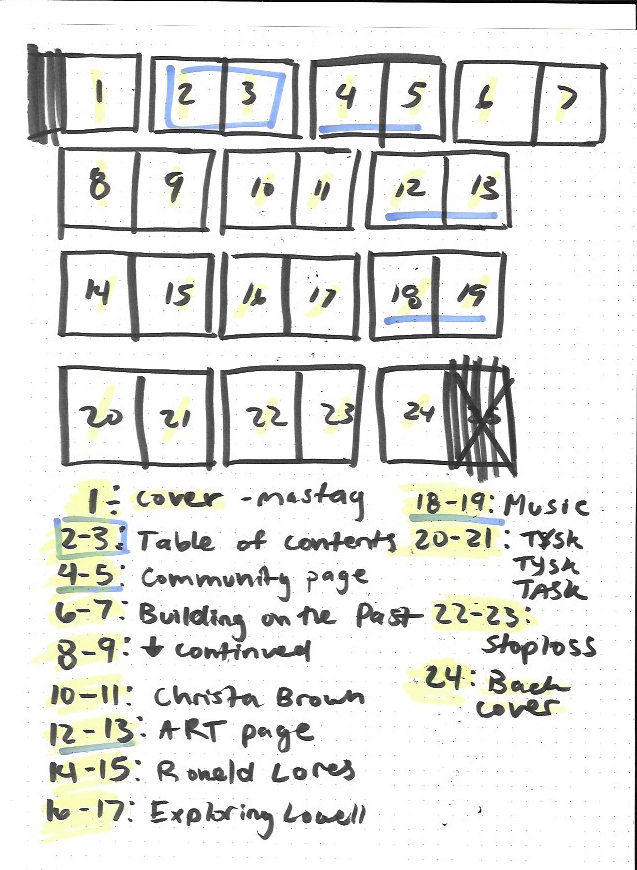 1 2 3 4 5 6 7
8 9 10 11 12 13
14 15 16 17 18 19
20 21 22 23 24
1: cover - mastag
2-3: Table of contents
4-5: Community page
6-7: Building on the Past
8-9: ↓ continued
10-11: Christa Brown
12-13: ART page
14-15: Ronald Lores
16-17: Exploring Lowell
18-19: Music
20-21: TYSK
TYSK
TASK
22-23:
Stoploss
24: Back
cover